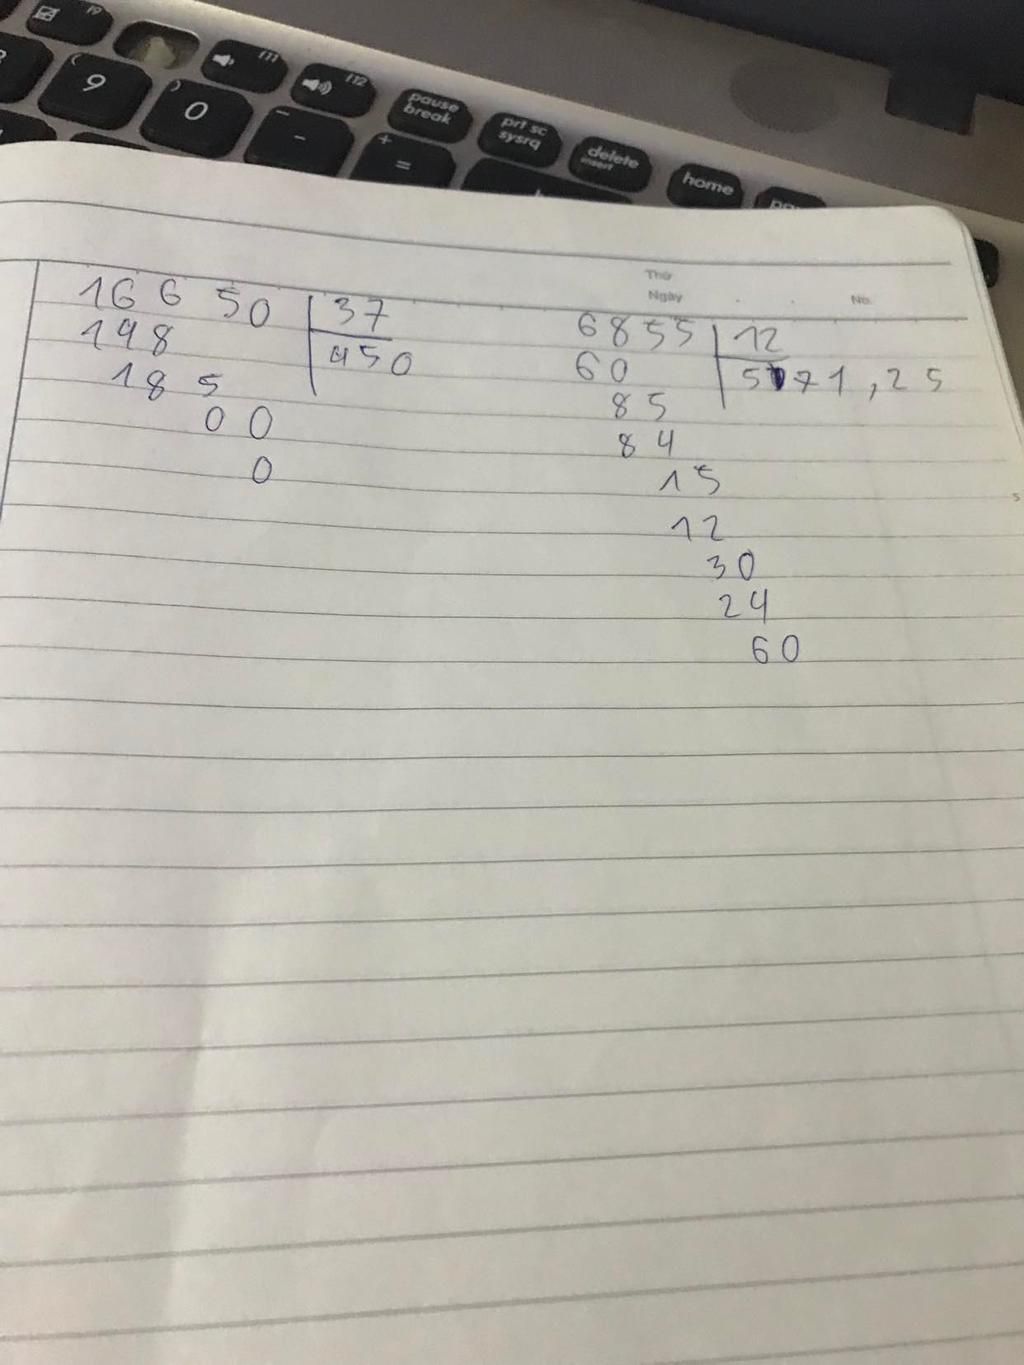 f9
f11
f12
9
0
-
+
=
pause
break
prt sc
sysrq
delete
insert
home
Thứ
Ngày
No.
16 6 50 37
148 450
18 5
0 0
0
6855 12
60 571,25
85
84
15
12
30
24
60